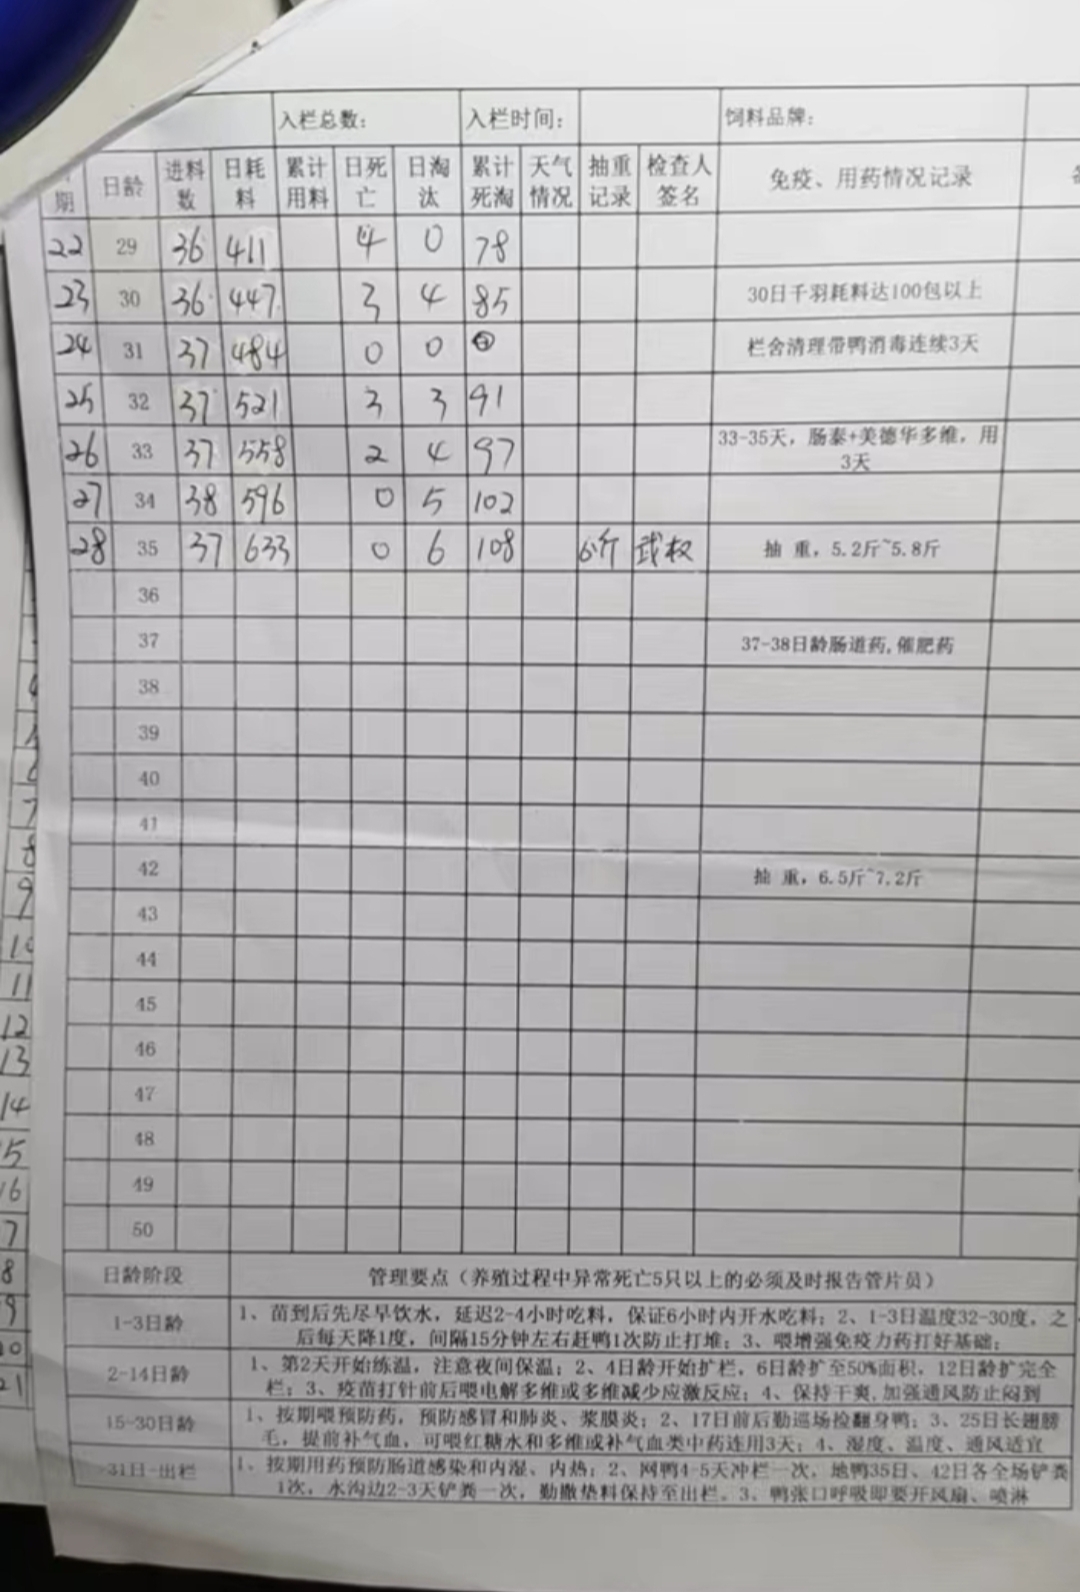 入栏总数： 入栏时间： 饲料品牌：
期 日龄 进料数 日耗料 累计用料 日死亡 日淘汰 累计死淘 天气情况 抽重记录 检查人签名 免疫、用药情况记录
22 29 36 411 4 0 78
23 30 36 447 3 4 85 30日千羽耗料达100包以上
24 31 37 484 0 0 栏舍清理带鸭消毒连续3天
25 32 37 521 3 3 91
26 33 37 558 2 4 97 33-35天，肠泰+美德华多维，用3天
27 34 38 596 0 5 102
28 35 37 633 0 6 108 6斤 武权 抽 重，5.2斤~5.8斤
36
37 37-38日龄肠道药,催肥药
38
39
40
41
42 抽 重，6.5斤~7.2斤
43
44
45
46
47
48
49
50
日龄阶段 管理要点（养殖过程中异常死亡5只以上的必须及时报告管片员）
1-3日龄 1、苗到后先尽早饮水，延迟2-4小时吃料，保证6小时内开水吃料；2、1-3日温度32-30度，之
后每天降1度，间隔15分钟左右赶鸭1次防止打堆；3、喂增强免疫力药打好基础；
2-14日龄 1、第2天开始练温，注意夜间保温；2、4日龄开始扩栏，6日龄扩至50%面积，12日龄扩完全
栏；3、疫苗打针前后喂电解多维或多维减少应激反应；4、保持干爽,加强通风防止闷到
15-30日龄 1、按期喂预防药，预防感冒和肺炎、浆膜炎；2、17日前后勤巡场捡翻身鸭；3、25日长翅膀
毛，提前补气血，可喂红糖水和多维或补气血类中药连用3天；4、湿度、温度、通风适宜
31日-出栏 1、按期用药预防肠道感染和内湿、内热；2、网鸭4-5天冲栏一次，地鸭35日、42日各全场铲粪
1次，水沟边2-3天铲粪一次，勤撒垫料保持至出栏。3、鸭张口呼吸即要开风扇、喷淋
7
8
9
10
11
12
13
14
15
16